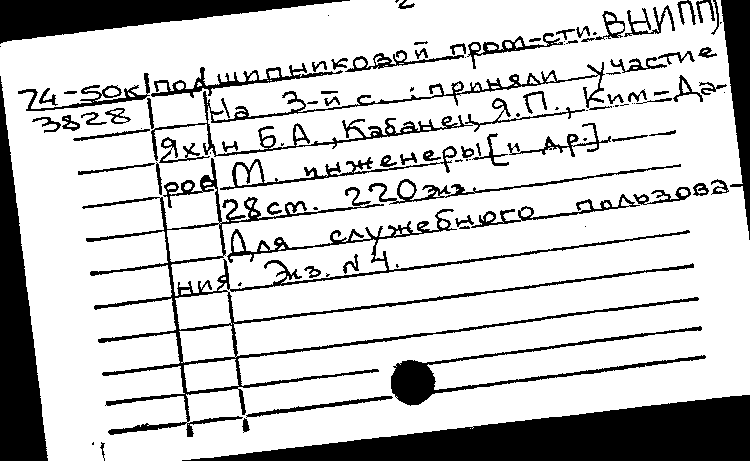 2
74-50к подшипниковой пром-сти. ВНИПП)
3828 На 3-й с.: приняли участие
Яхин Б.А., Кабанец Я.П., Ким-Да-
ров М. инженеры [и др.].
28 ст. 220 экз.
Для служебного пользова-
ния. Экз. N 4.